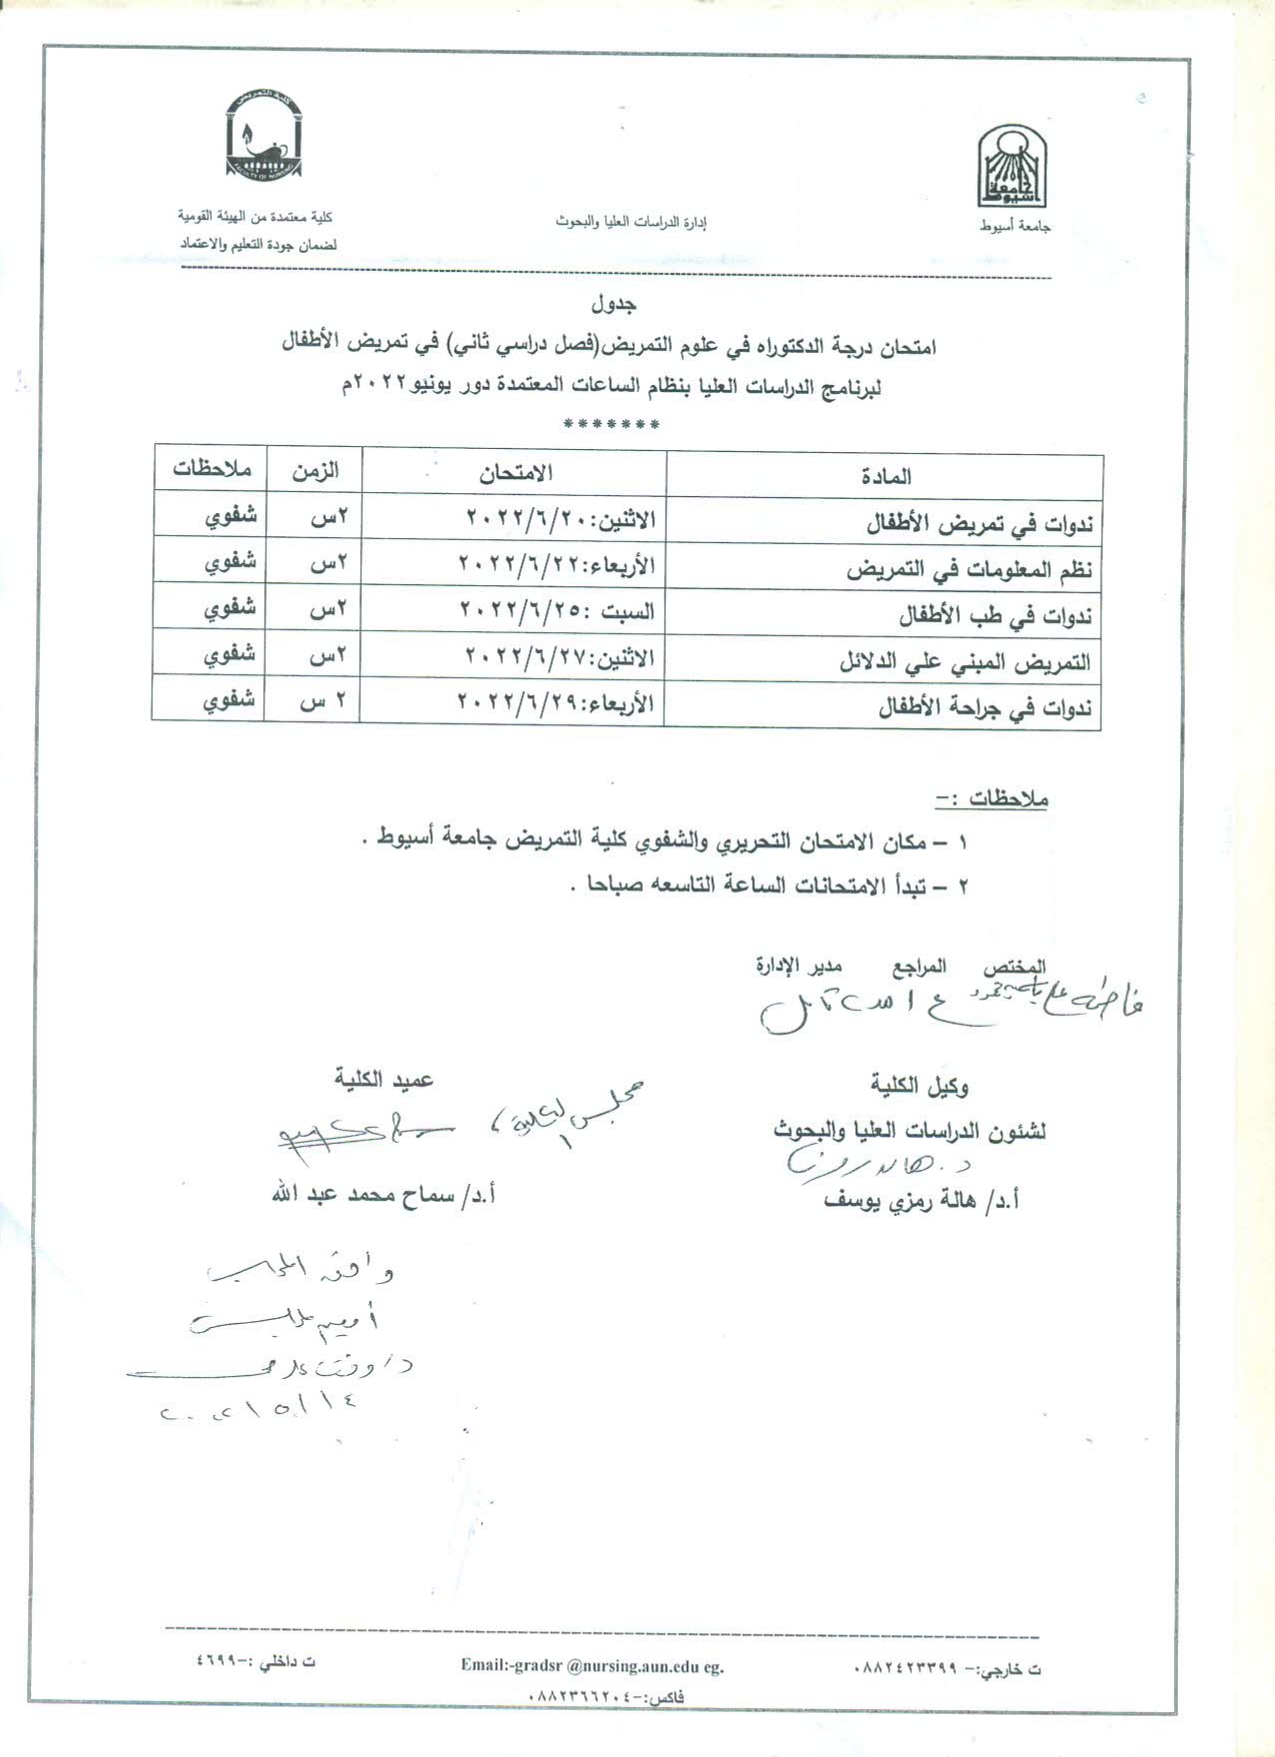 كلية التمريض
FACULTY OF NURSING
جامعة أسيوط
جامعة أسيوط
إدارة الدراسات العليا والبحوث
كلية معتمدة من الهيئة القومية
لضمان جودة التعليم والاعتماد
جدول
امتحان درجة الدكتوراه في علوم التمريض(فصل دراسي ثاني) في تمريض الأطفال
لبرنامج الدراسات العليا بنظام الساعات المعتمدة دور يونيو٢٠٢٢م
*******
المادة الامتحان الزمن ملاحظات
ندوات في تمريض الأطفال الاثنين:٢٠٢٢/٦/٢٠ ٢س شفوي
نظم المعلومات في التمريض الأربعاء:٢٠٢٢/٦/٢٢ ٢س شفوي
ندوات في طب الأطفال السبت :٢٠٢٢/٦/٢٥ ٢س شفوي
التمريض المبني علي الدلائل الاثنين:٢٠٢٢/٦/٢٧ ٢س شفوي
ندوات في جراحة الأطفال الأربعاء:٢٠٢٢/٦/٢٩ ٢ س شفوي
ملاحظات :-
١ – مكان الامتحان التحريري والشفوي كلية التمريض جامعة أسيوط .
٢ – تبدأ الامتحانات الساعة التاسعه صباحا .
المختص المراجع مدير الإدارة
وكيل الكلية عميد الكلية
مجلس الكلية
لشئون الدراسات العليا والبحوث
أ.د/ هالة رمزي يوسف أ.د/ سماح محمد عبد الله
وافق المجلس
أمين المجلس
ت خارجي:- ٠٨٨٢٤٢٣٣٩٩ Email:-gradsr @nursing.aun.edu eg. ت داخلي :-٤٦٩٩
فاكس:-٠٨٨٢٣٦٦٢٠٤